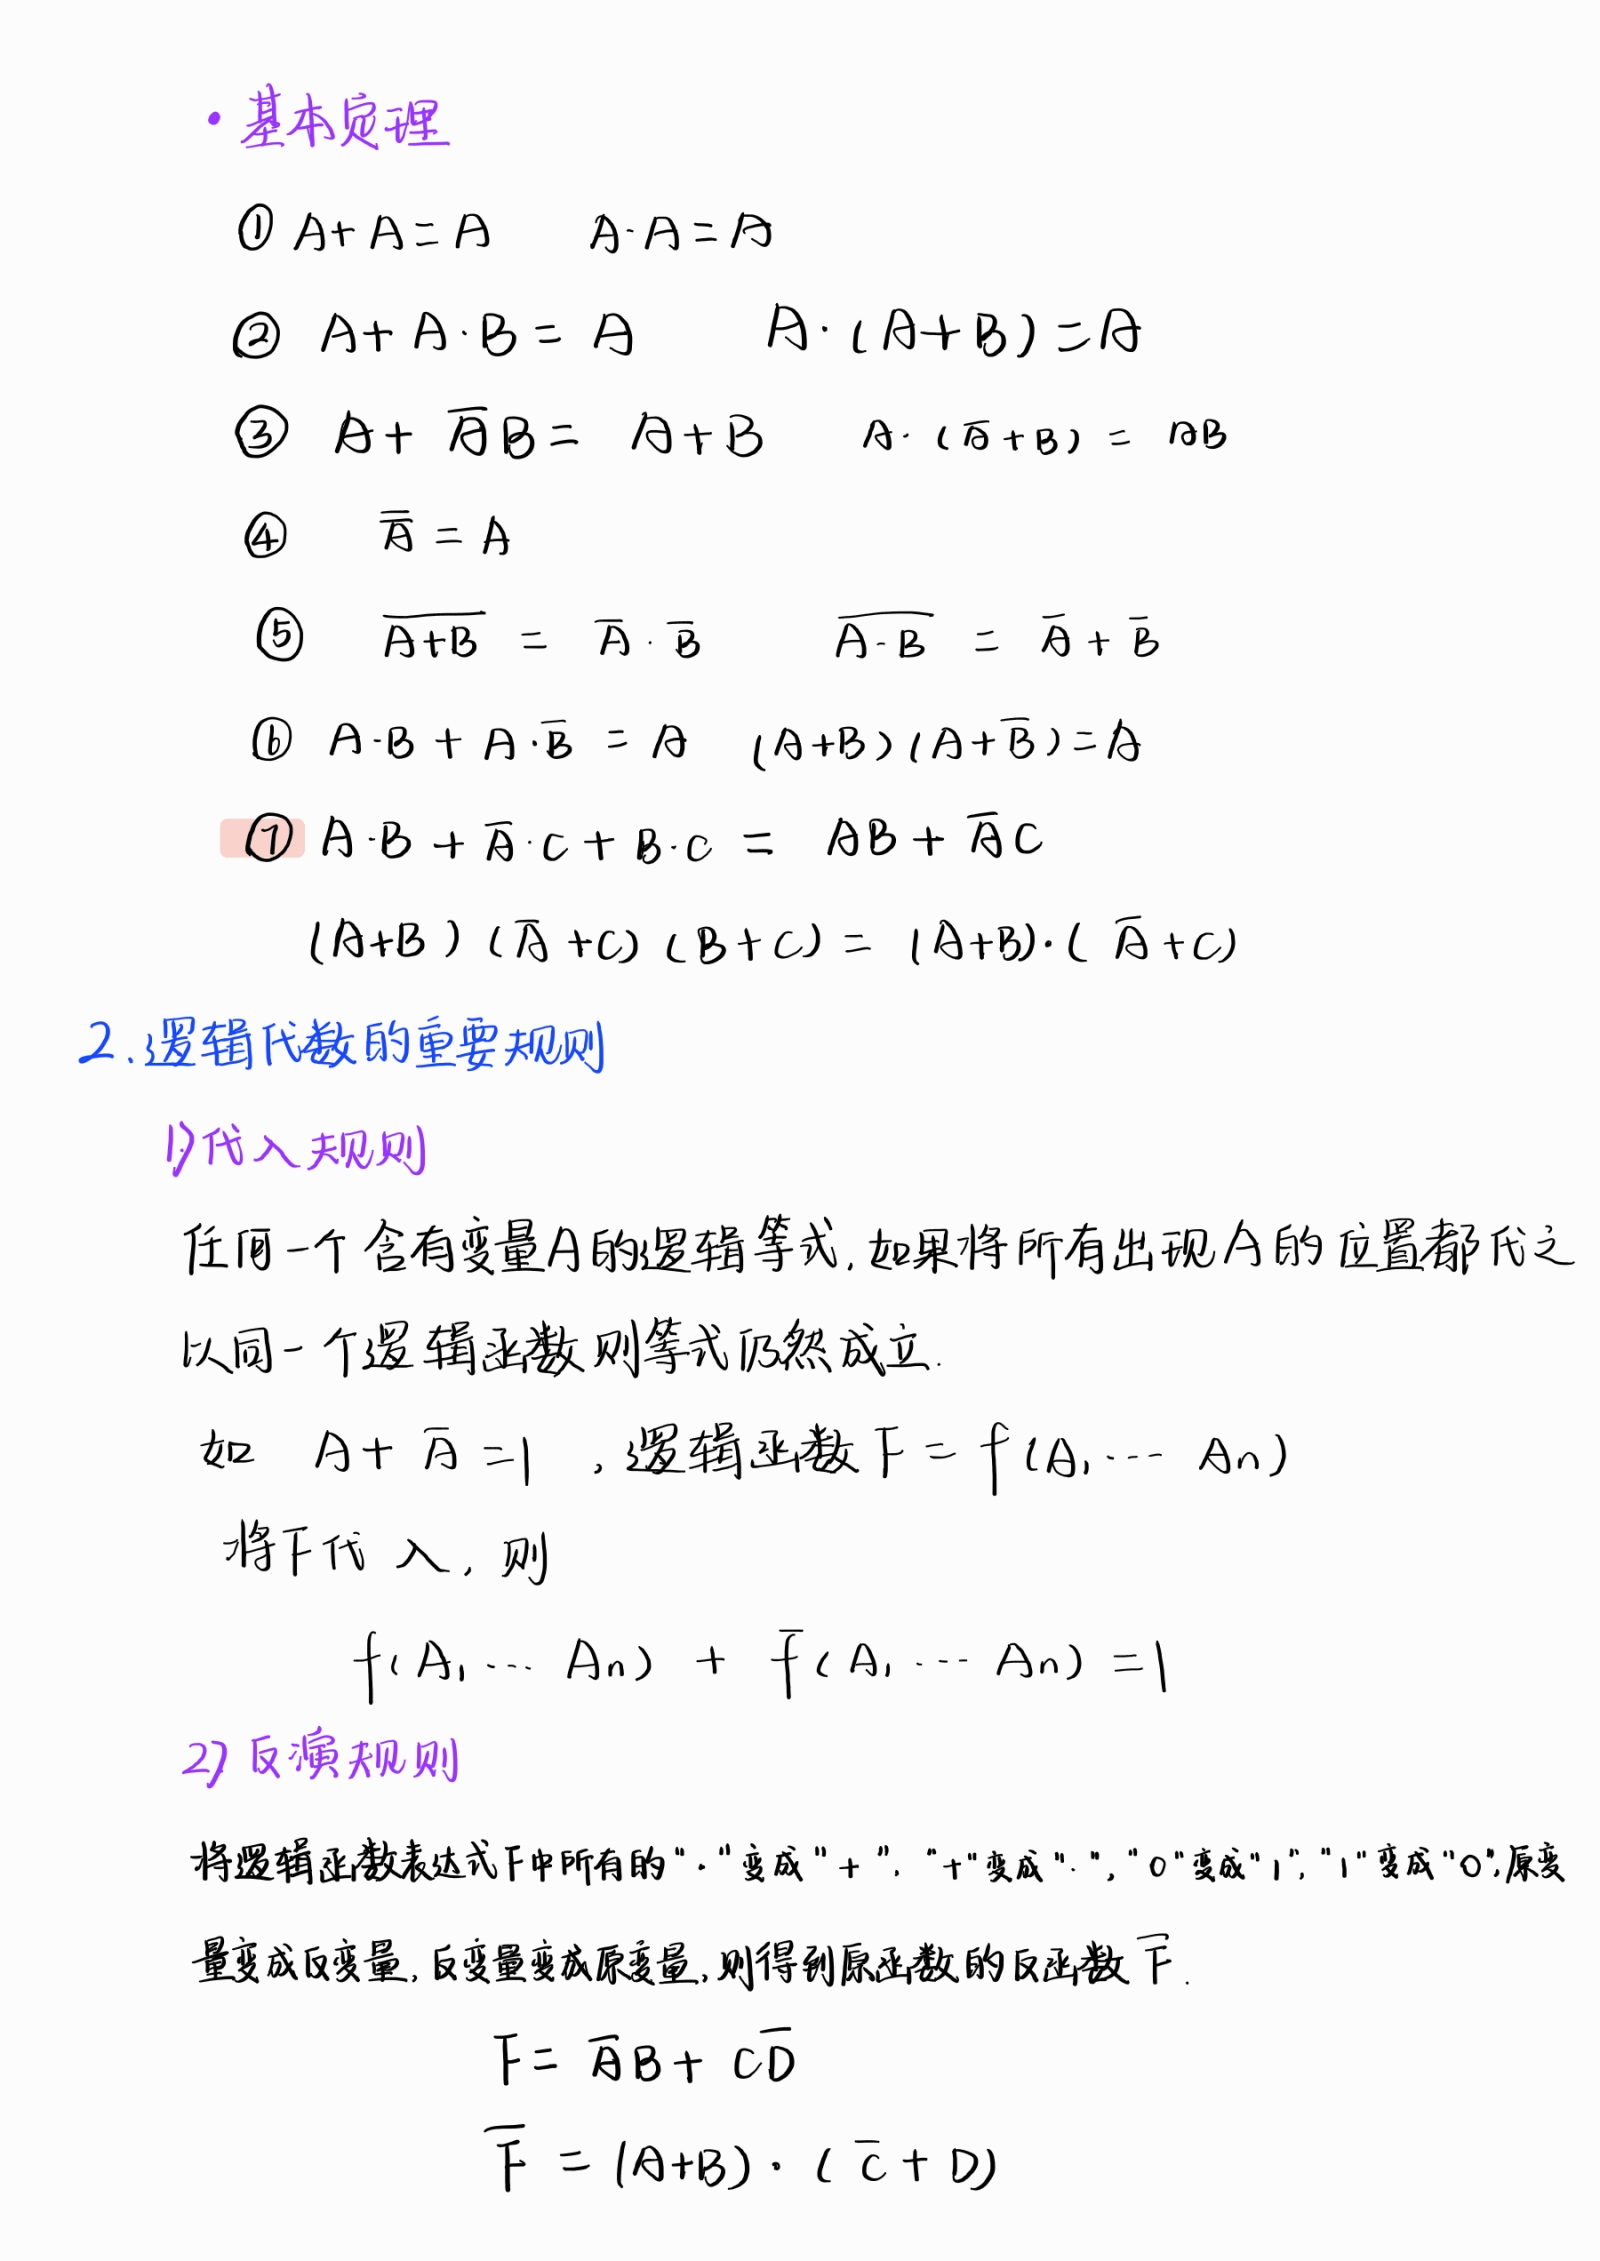 ·基本定理
① A+A=A A·A=A
② A+A·B=A A·(A+B)=A
③ A+A̅B=A+B A·(A̅+B)=AB
④ A̿=A
⑤ A̅+̅B̅=A̅·B̅ A̅·̅B̅=A̅+B̅
⑥ A·B+A·B̅=A (A+B)(A+B̅)=A
⑦ A·B+A̅·C+B·C=AB+A̅C
(A+B)(A̅+C)(B+C)=(A+B)·(A̅+C)
2.逻辑代数的重要规则
1)代入规则
任何一个含有变量A的逻辑等式,如果将所有出现A的位置都代之
以同一个逻辑函数则等式仍然成立.
如 A+A̅=1 ,逻辑函数F=f(A₁··· An)
将F代入,则
f(A₁··· An) + f̅(A₁··· An)=1
2)反演规则
将逻辑函数表达式F中所有的"·"变成"+","+"变成"·","0"变成"1","1"变成"0",原变
量变成反变量,反变量变成原变量,则得到原函数的反函数F̅.
F=A̅B+CD̅
F̅=(A+B)·(C̅+D)